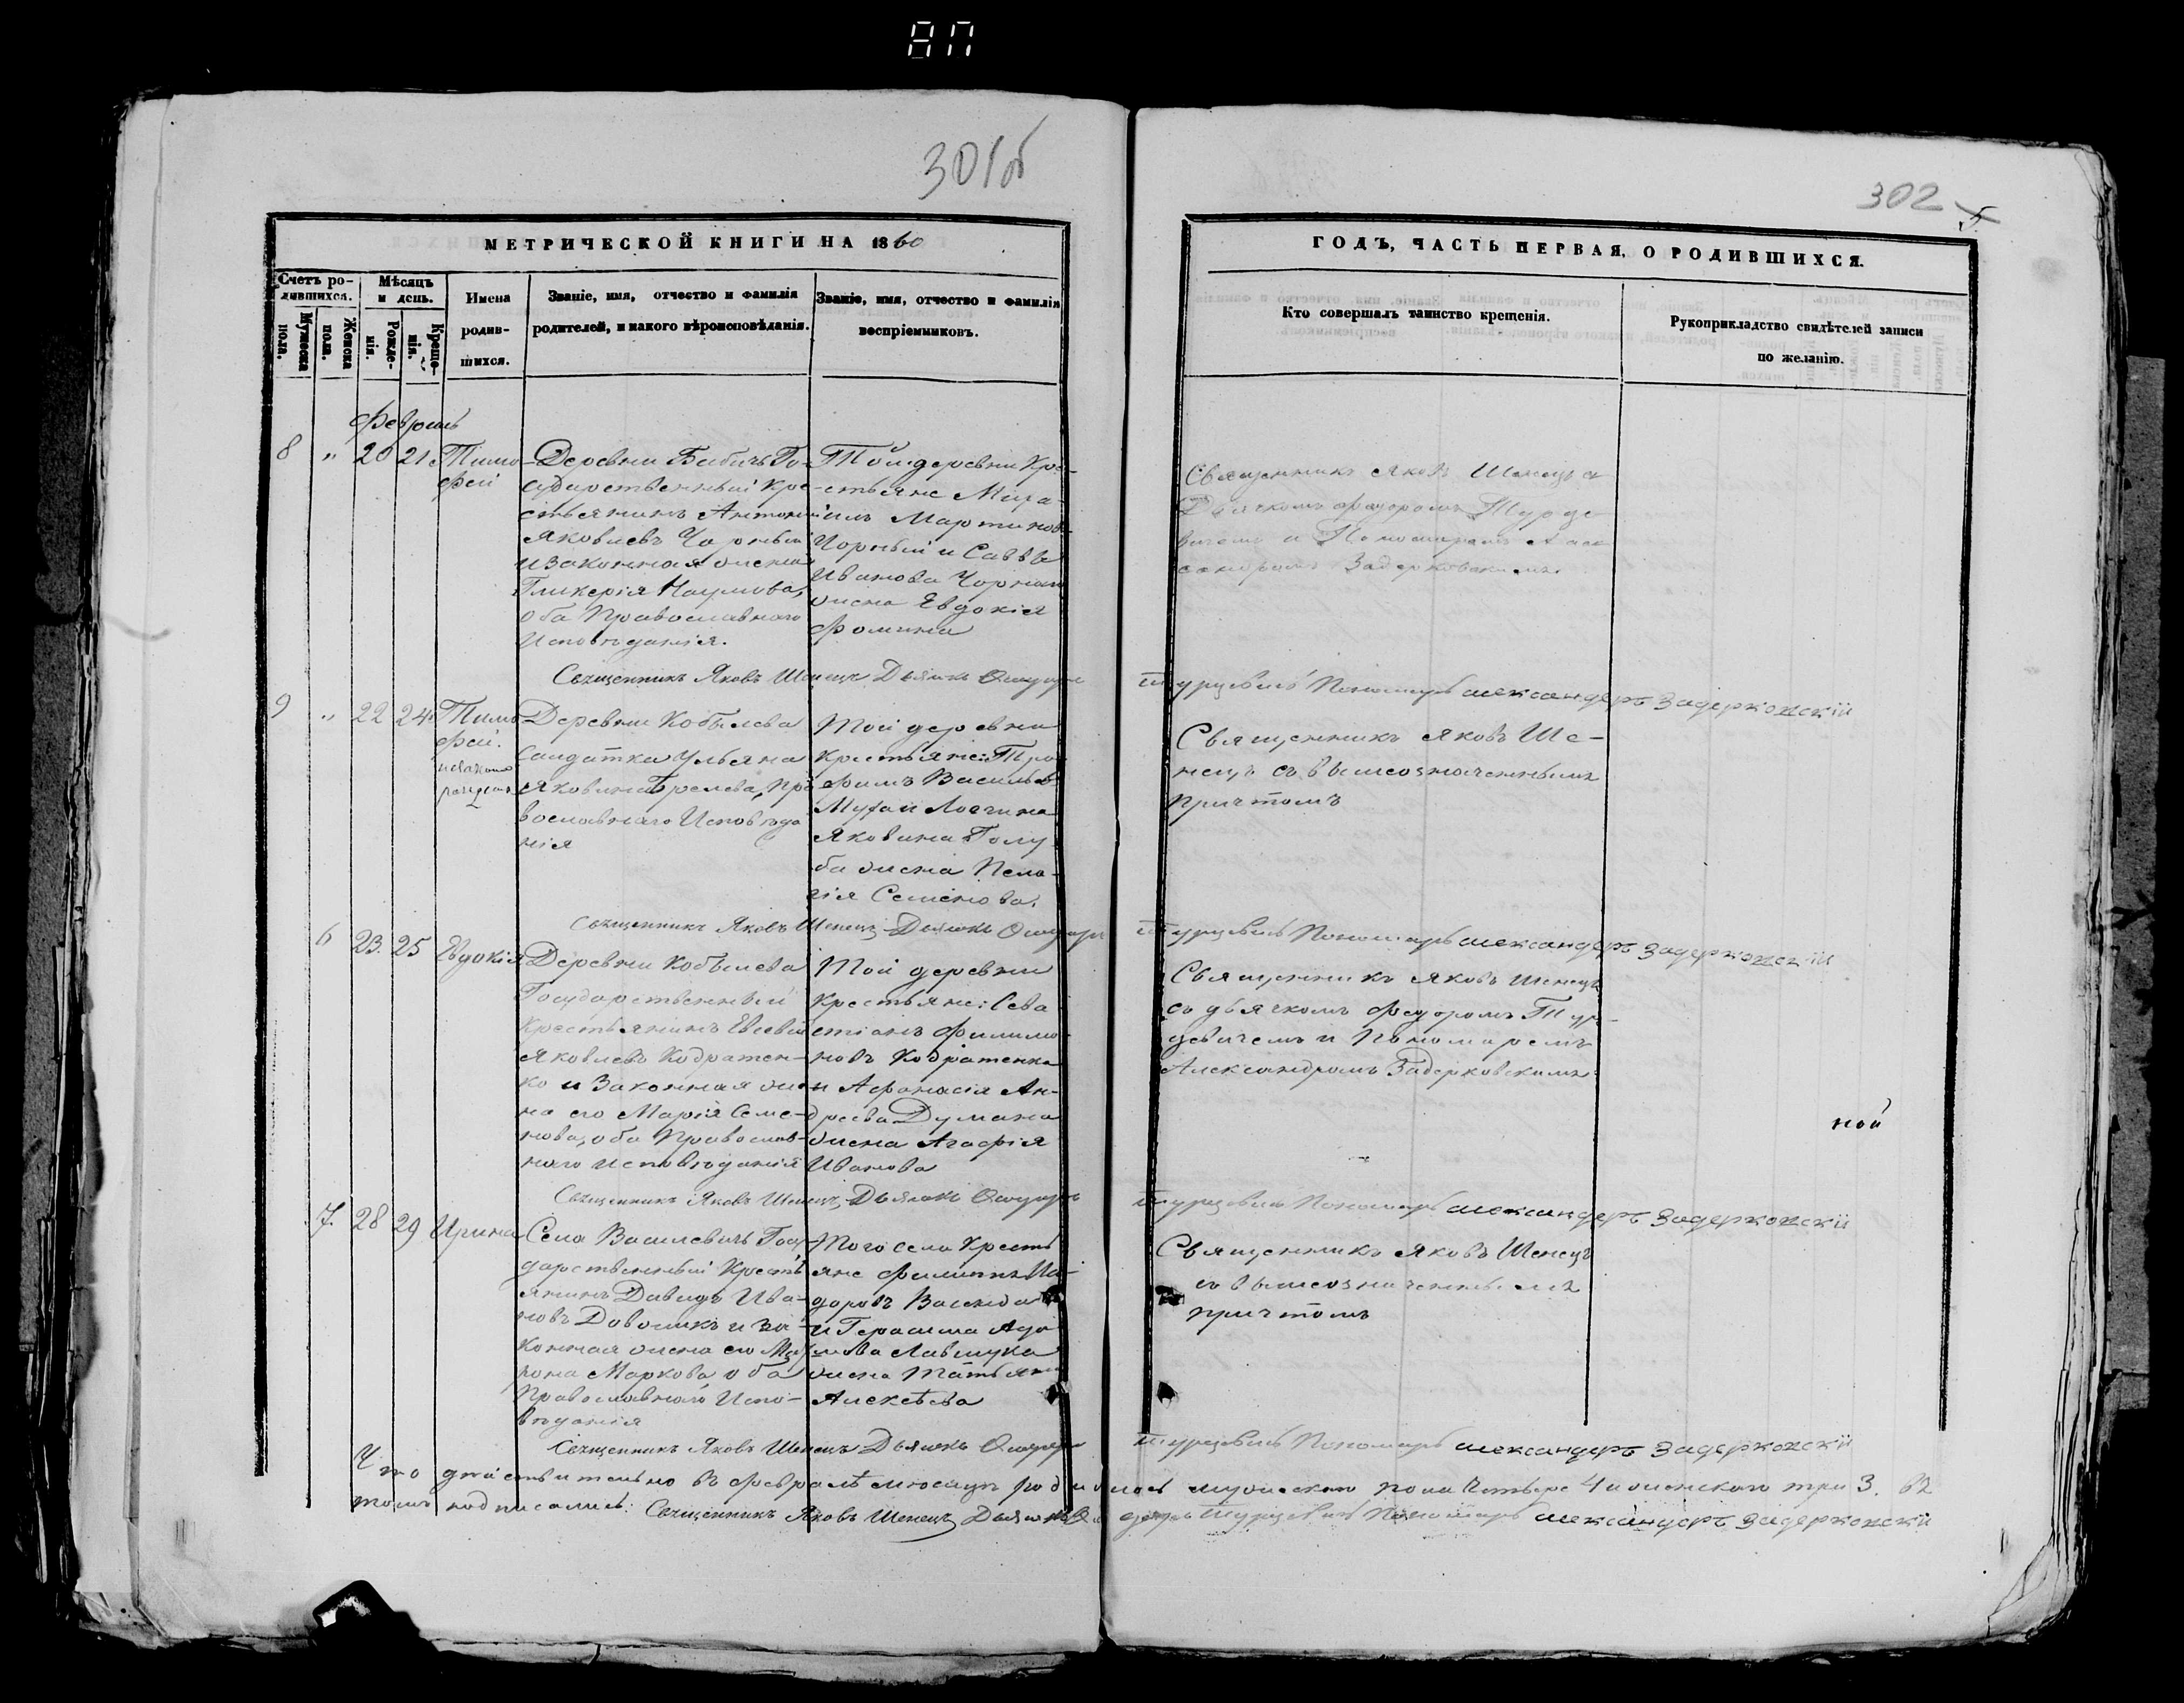 80
301об
302
МЕТРИЧЕСКОЙ КНИГИ НА 1860
Счетъ ро-
дившихся.
Мужеска
пола.
Женска
пола.
Мѣсяцъ
и день.
Рожде-
нія.
Креще-
нія.
Имена
родив-
шихся.
Званіе, имя, отчество и фамилія
родителей, и какого вѣроисповѣданія.
Званіе, имя, отчество и фамилія
воспріемниковъ.
ГОДЪ, ЧАСТЬ ПЕРВАЯ, О РОДИВШИХСЯ.
Кто совершалъ таинство крещенія.
Рукоприкладство свидѣтелей записи
по желанію.
Февраль
8 " 20 21
Тимо-
фей
Деревни Бабичъ Го-
сударственный Кре-
стьянинъ Антоній
Яковлевъ Чорный
и законная жена
Гликерія Наумова,
оба Православнаго
Исповѣданія.
Той деревни Кре-
стьяне Миха-
илъ Мартиновъ
Чорный и Саввы
Иванова Чорнаго
жена Евдокія
Фомина
Священникъ Яковъ Шенецъ съ
Дьячкомъ Федоромъ Турце-
вичемъ и Пономаремъ Алек-
сандромъ Задерковскимъ
Священникъ Яковъ Шенецъ Дьячекъ Ѳеодоръ Турцевичъ Пономарь Александеръ Задерковскій
9 " 22 24
Тимо-
фей.
незаконно
рожден.
Деревни Кобылева
Салдатка Ульяна
Яковина Грелева, Пра-
вославнаго Исповѣда-
нія
Той деревни
Крестьяне: Тро-
фимъ Васильев
Яковина Голу-
ба жена Пела-
гія Семенова.
Священникъ Яковъ Ше-
нецъ съ вышеозначеннымъ
причтомъ
Священникъ Яковъ Шенецъ Дьячекъ Ѳеодоръ Турцевичъ Пономарь Александеръ Задерковскій
6 23. 25 Евдокія
Деревни Кобылева
Государственный
Крестьянинъ Евсевій
Яковлевъ Кодратен-
ко и Законная же-
на его Марія Семе-
нова, оба Православ-
наго исповѣданія
Той деревни
Крестьяне: Сева-
стіанъ Филимо-
новъ Кодратенка
и Афанасія Ан-
дреева Думана
жена Агафія
Иванова
Священникъ Яковъ Шенецъ
съ дьячкомъ Федоромъ Тур-
цевичемъ и Пономаремъ
Александромъ Задерковскимъ
ной
Священникъ Яковъ Шенецъ Дьячекъ Ѳеодоръ Турцевичъ Пономарь Александеръ Задерковскій
7. 28 29 Ирина
Села Василевичъ Госу-
дарственный Кресть-
янинъ Давидъ Ива-
новъ Доволикъ и за-
конная жена его
Маркова, оба
Православнаго Испо-
вѣданія
Того села Кресть-
яне Филиппъ
и Герасима
жена Татьяна
Алексѣева
Священникъ Яковъ Шенецъ
съ вышеозначеннымъ
причтомъ
Священникъ Яковъ Шенецъ Дьячекъ Ѳеодоръ Турцевичъ Пономарь Александеръ Задерковскій
Что дѣйствительно въ февралѣ мѣсяцѣ родилось мужескаго пола Четыре 4 и женскаго три 3. въ
томъ подписались: Священникъ Яковъ Шенецъ Дьячекъ Ѳеодоръ Турцевичъ Пономарь Александеръ Задерковскій